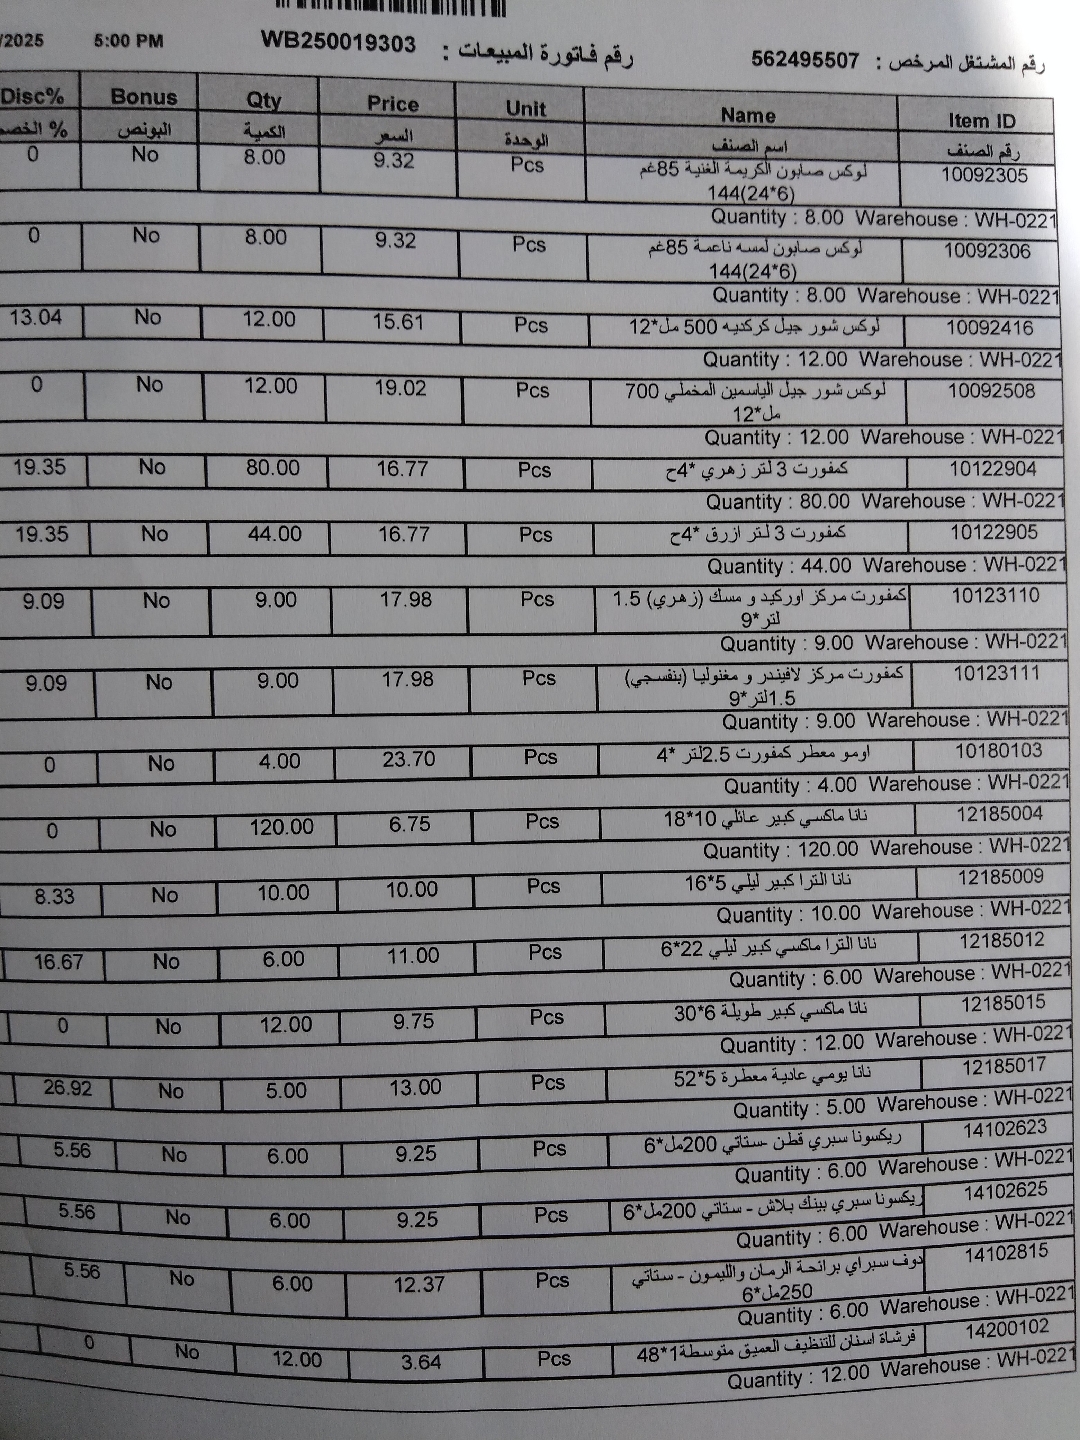 /2025 5:00 PM WB250019303 : رقم فاتورة المبيعات 562495507 : رقم المشتغل المرخص
Disc% Bonus Qty Price Unit Name Item ID
% الخصم البونص الكمية السعر الوحدة اسم الصنف رقم الصنف
0 No 8.00 9.32 Pcs لوكس صابون الكريمة الغنية 85غم 10092305
144(24*6)
Quantity : 8.00 Warehouse : WH-0221
0 No 8.00 9.32 Pcs لوكس صابون لمسه ناعمة 85غم 10092306
144(24*6)
Quantity : 8.00 Warehouse : WH-0221
13.04 No 12.00 15.61 Pcs لوكس شور جيل كركديه 500 مل*12 10092416
Quantity : 12.00 Warehouse : WH-0221
0 No 12.00 19.02 Pcs لوكس شور جيل الياسمين المخملي 700 10092508
مل*12
Quantity : 12.00 Warehouse : WH-0221
19.35 No 80.00 16.77 Pcs كمفورت 3 لتر زهري *4ح 10122904
Quantity : 80.00 Warehouse : WH-0221
19.35 No 44.00 16.77 Pcs كمفورت 3 لتر ازرق *4ح 10122905
Quantity : 44.00 Warehouse : WH-0221
9.09 No 9.00 17.98 Pcs كمفورت مركز اوركيد و مسك (زهري) 1.5 10123110
لتر*9
Quantity : 9.00 Warehouse : WH-0221
9.09 No 9.00 17.98 Pcs كمفورت مركز لافيندر و مغنوليا (بنفسجي) 10123111
1.5لتر*9
Quantity : 9.00 Warehouse : WH-0221
0 No 4.00 23.70 Pcs اومو معطر كمفورت 2.5لتر *4 10180103
Quantity : 4.00 Warehouse : WH-0221
0 No 120.00 6.75 Pcs نانا ماكسي كبير عائلي 10*18 12185004
Quantity : 120.00 Warehouse : WH-0221
8.33 No 10.00 10.00 Pcs نانا الترا كبير ليلي 5*16 12185009
Quantity : 10.00 Warehouse : WH-0221
16.67 No 6.00 11.00 Pcs نانا الترا ماكسي كبير ليلي 22*6 12185012
Quantity : 6.00 Warehouse : WH-0221
0 No 12.00 9.75 Pcs نانا ماكسي كبير طويلة 6*30 12185015
Quantity : 12.00 Warehouse : WH-0221
26.92 No 5.00 13.00 Pcs نانا يومي عادية معطرة 5*52 12185017
Quantity : 5.00 Warehouse : WH-0221
5.56 No 6.00 9.25 Pcs ريكسونا سبري قطن -ستاتي 200مل*6 14102623
Quantity : 6.00 Warehouse : WH-0221
5.56 No 6.00 9.25 Pcs ريكسونا سبري بينك بلاش - ستاتي 200مل*6 14102625
Quantity : 6.00 Warehouse : WH-0221
5.56 No 6.00 12.37 Pcs دوف سبراي برائحة الرمان والليمون - ستاتي 14102815
250مل*6
Quantity : 6.00 Warehouse : WH-0221
0 No 12.00 3.64 Pcs فرشاة اسنان للتنظيف العميق متوسطة1*48 14200102
Quantity : 12.00 Warehouse : WH-0221